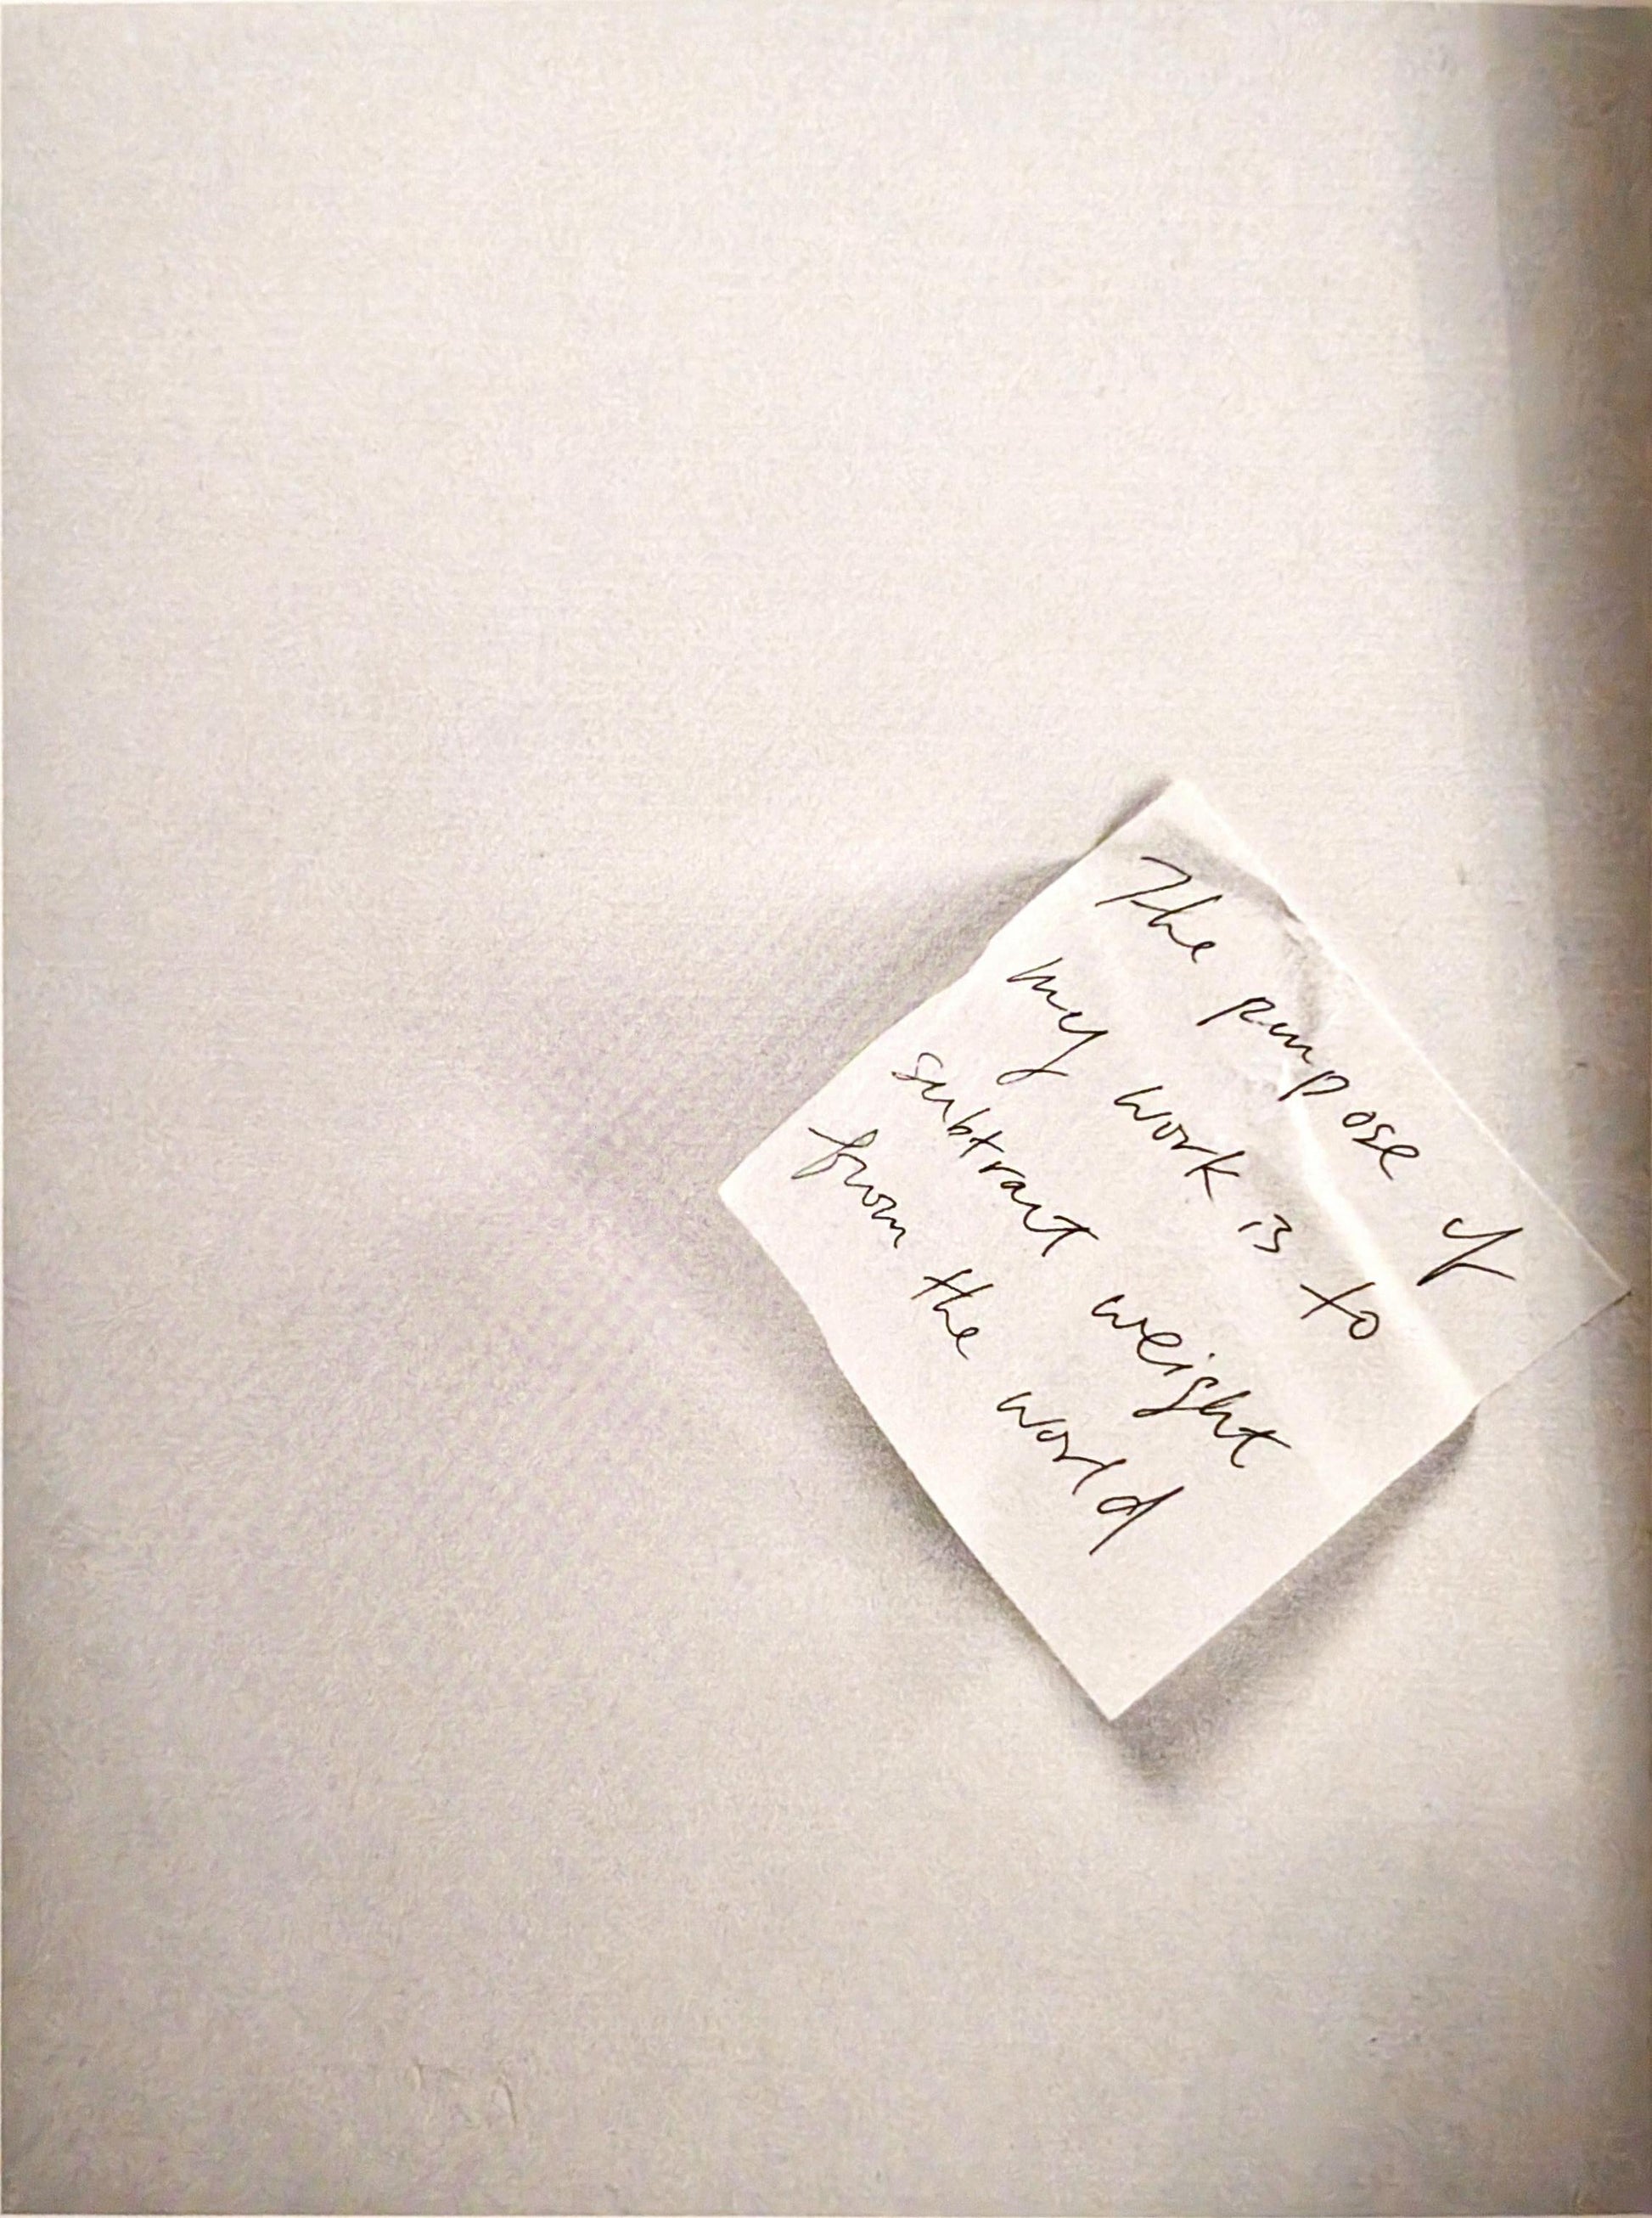 The purpose of
my work is to
subtract weight
from the world